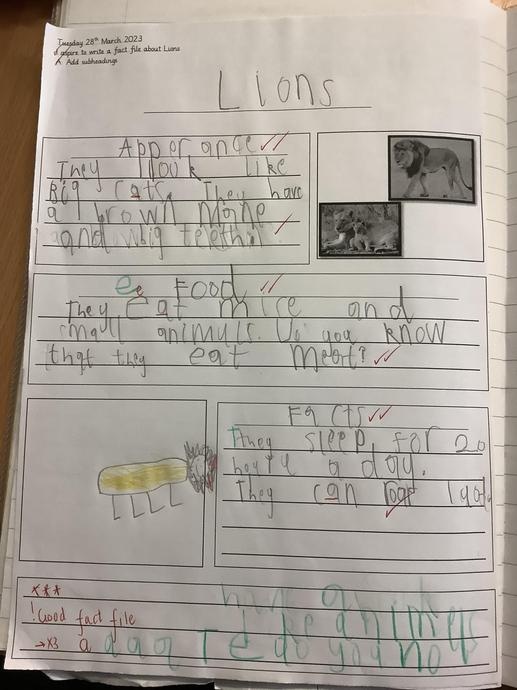 Tuesday 28th March 2023
I aspire to write a fact file about Lions
Add subheadings
Lions
Apperance
They look like
Big cats. They have
a brown mane
and big teeth
ee Food
They eat mice and
small animuls. Do you know
that they eat meat?
Facts
They sleep for 20
a day.
They can roar
***
! Good fact file
→ x3 a a a a T E do you no